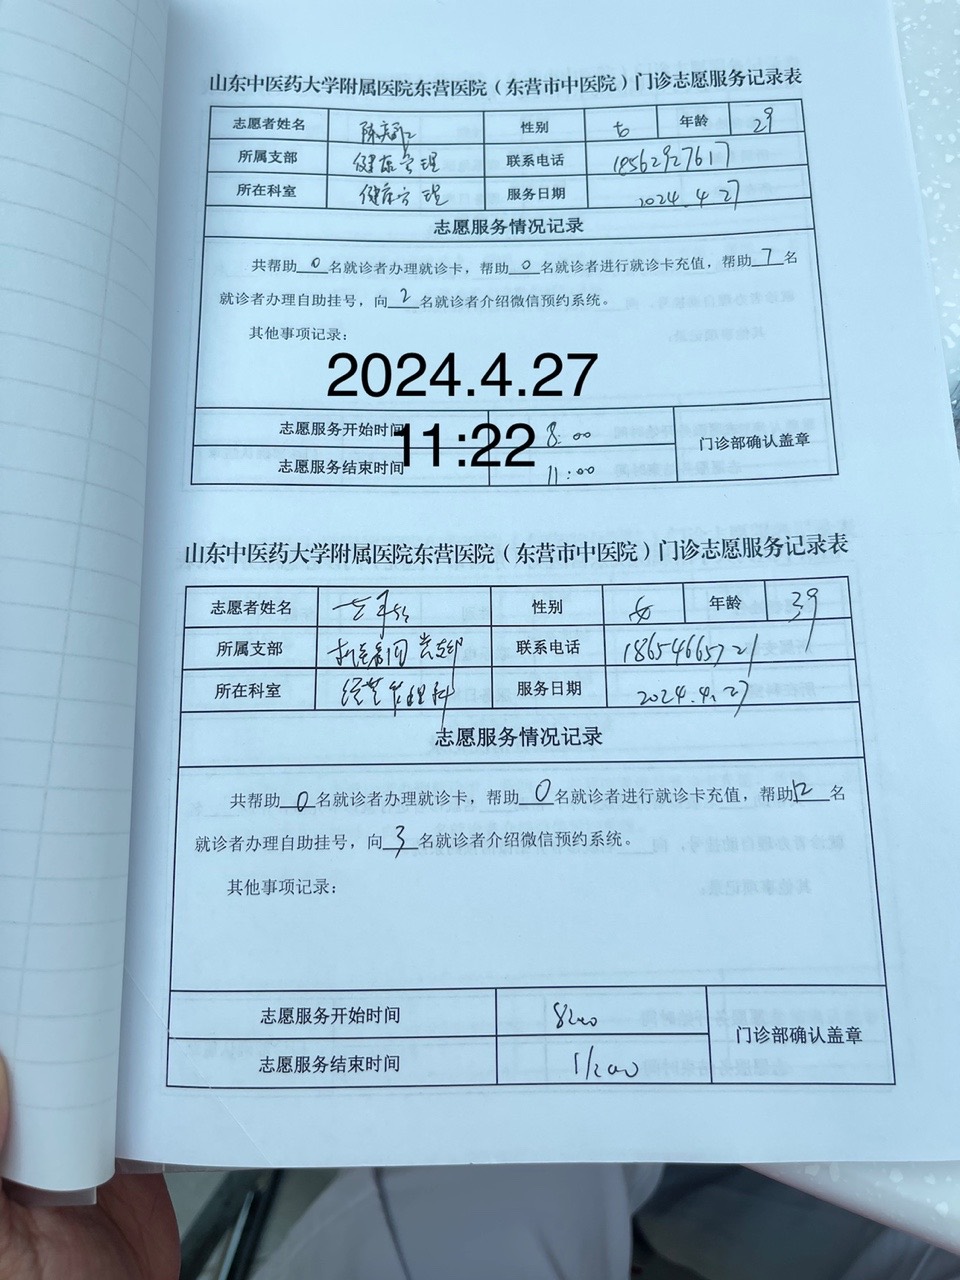 山东中医药大学附属医院东营医院（东营市中医院）门诊志愿服务记录表
志愿者姓名 陈 性别 女 年龄 29
所属支部 健康管理 联系电话 18562927617
所在科室 健康管理 服务日期 2024.4.27
志愿服务情况记录
共帮助0名就诊者办理就诊卡，帮助0名就诊者进行就诊卡充值，帮助7名
就诊者办理自助挂号，向2名就诊者介绍微信预约系统。
其他事项记录：
2024.4.27
11:22
志愿服务开始时间 8:00 门诊部确认盖章
志愿服务结束时间 11:00
山东中医药大学附属医院东营医院（东营市中医院）门诊志愿服务记录表
志愿者姓名 性别 女 年龄 39
所属支部 联系电话 18654665721
所在科室 经营管理科 服务日期 2024.4.27
志愿服务情况记录
共帮助0名就诊者办理就诊卡，帮助0名就诊者进行就诊卡充值，帮助12名
就诊者办理自助挂号，向3名就诊者介绍微信预约系统。
其他事项记录：
志愿服务开始时间 8:00 门诊部确认盖章
志愿服务结束时间 11:00